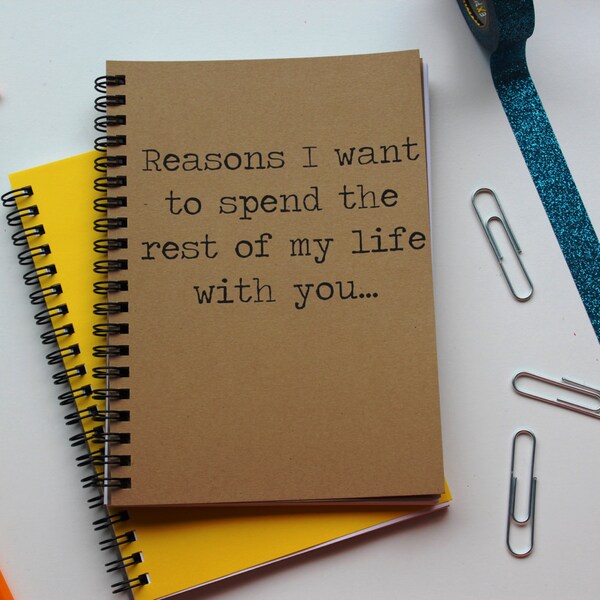 Reasons I want
to spend the
rest of my life
with you...